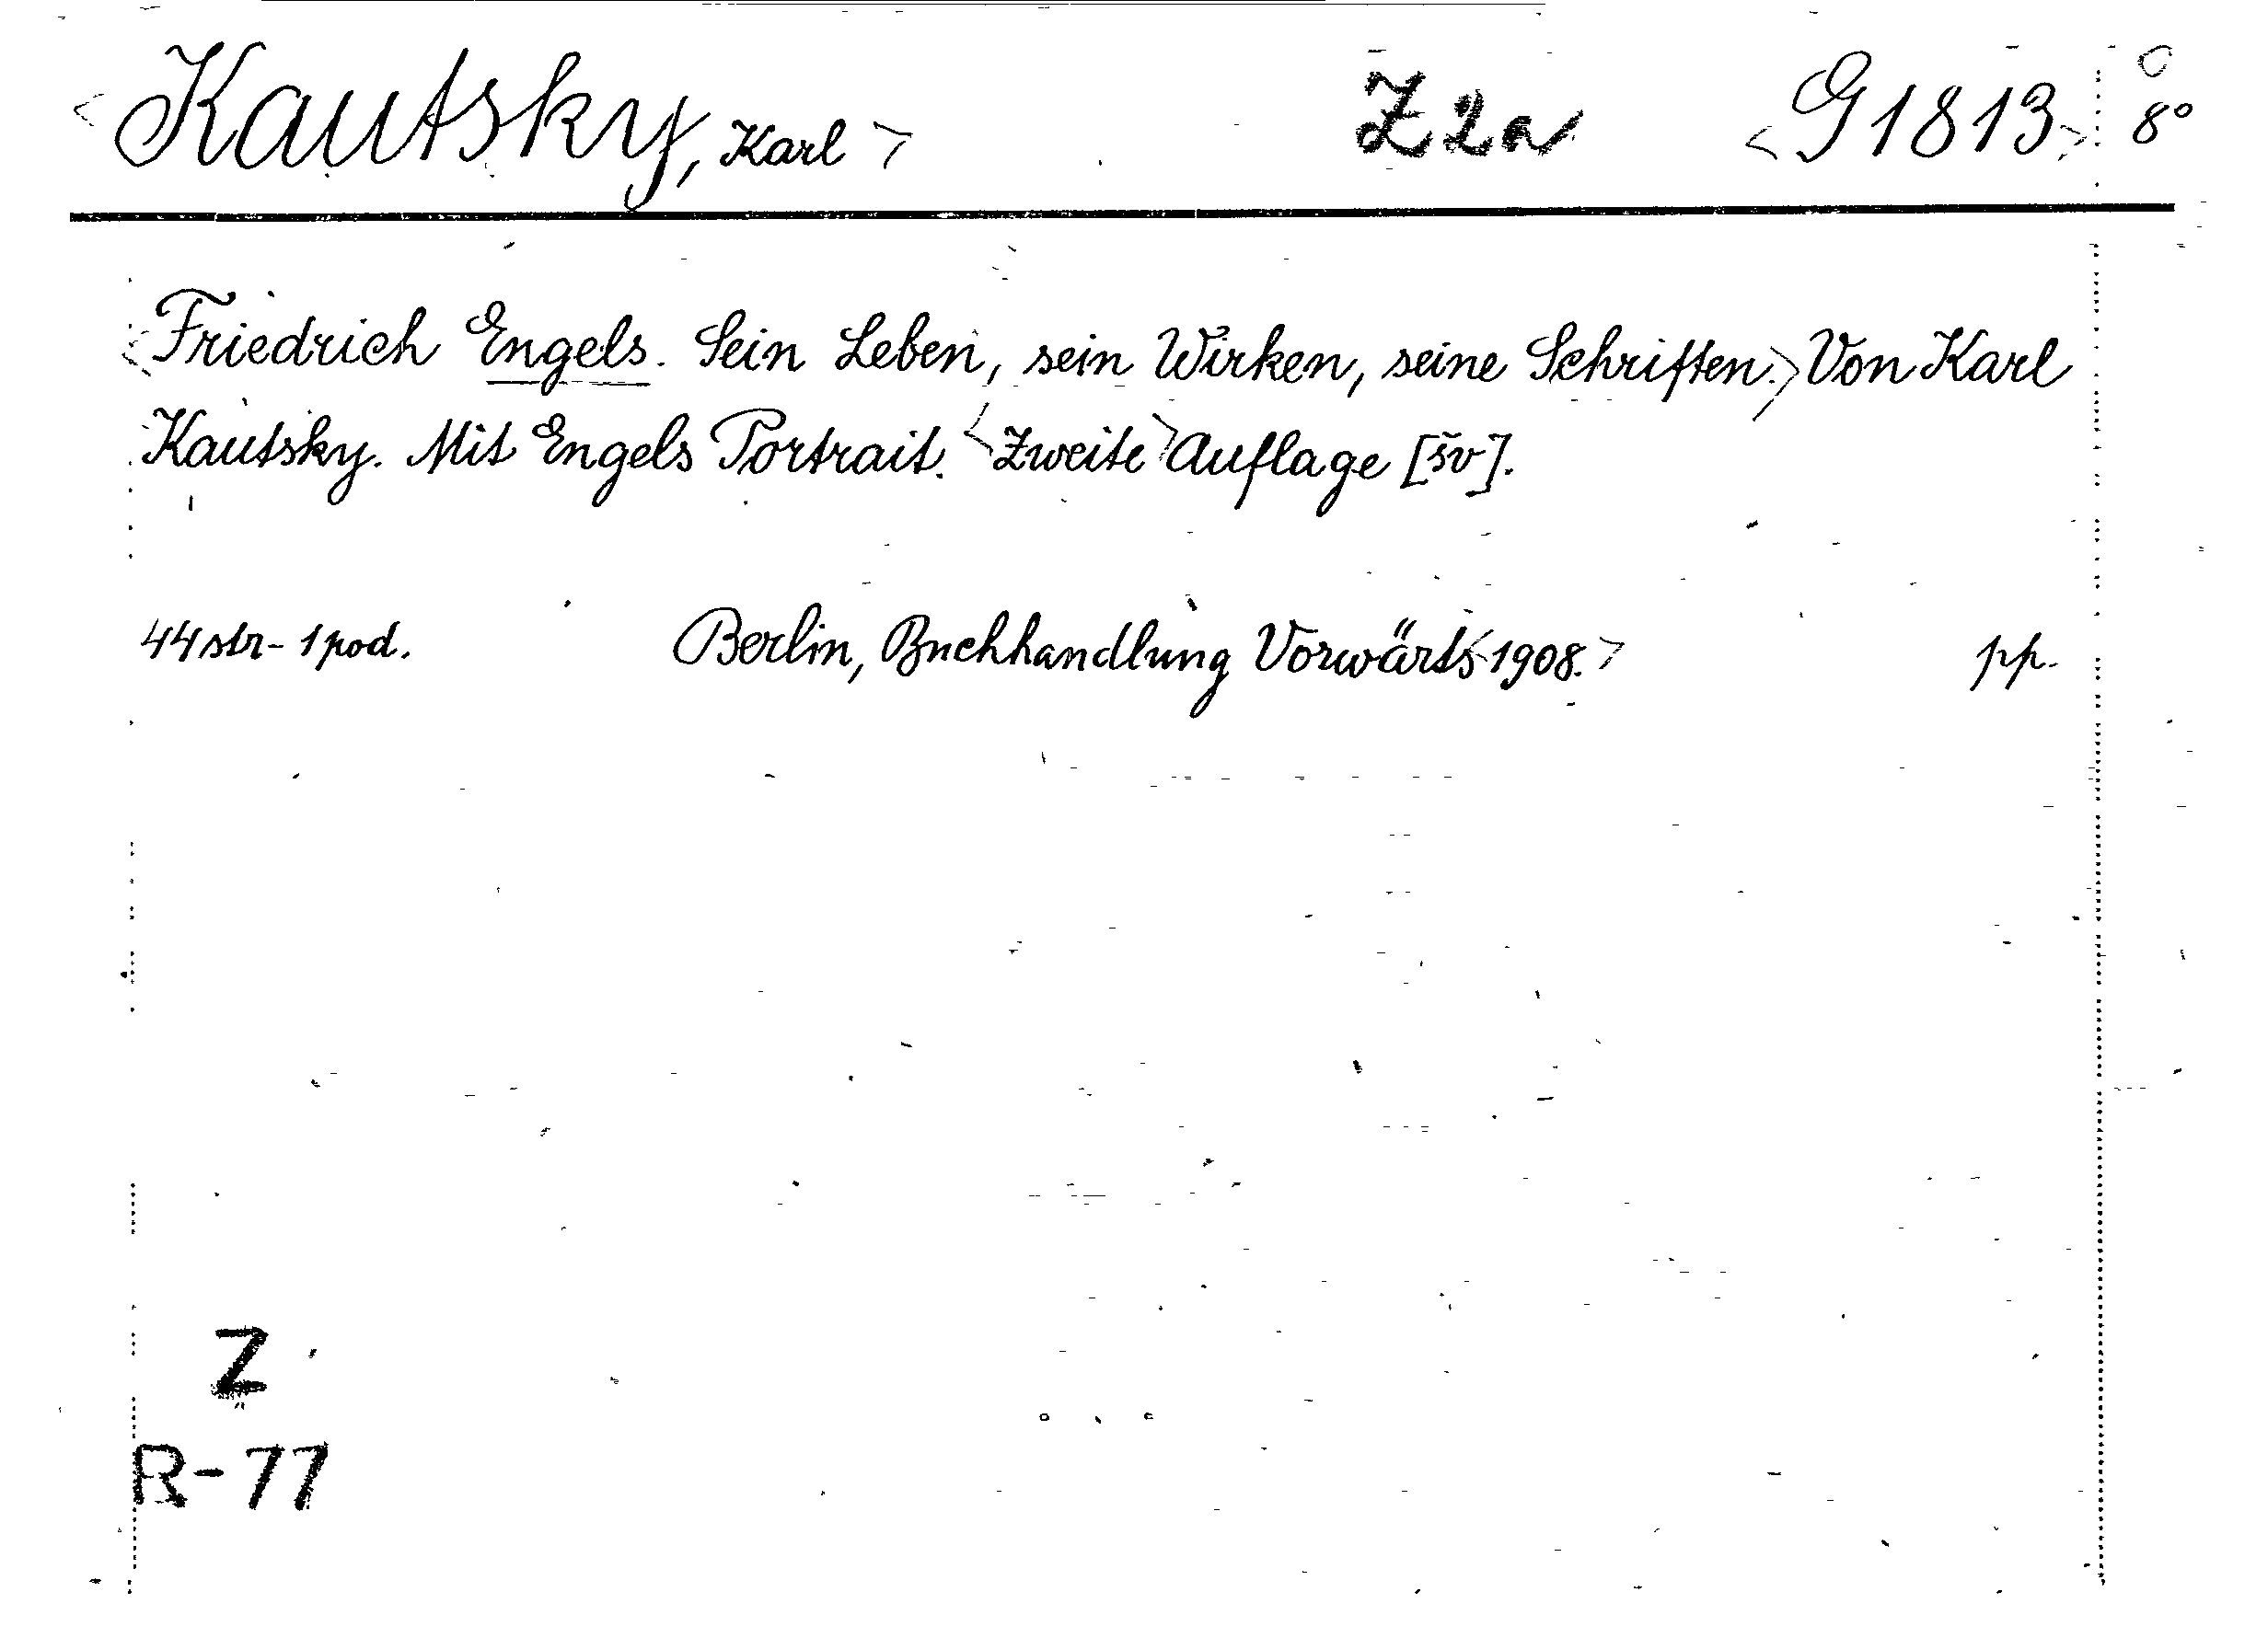 <Kautsky, Karl> Z2a <G1813> 8°
<Friedrich Engels. Sein Leben, sein Wirken, seine Schriften.> Von Karl
Kautsky. Mit Engels Portrait. <Zweite> Auflage [šv].
44 str - 1 pod. Berlin, Buchhandlung Vorwärts <1908.> pp.
Z
R-77